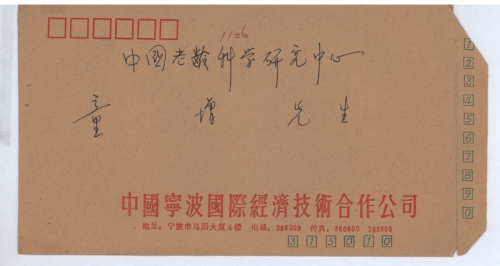 1106
中國老龄科学研究中心
童 增 先生
中國寧波國際經濟技術合作公司
地址：宁波市马园大厦4楼 电话：366038 传真：366850 363905
315010
1
2
3
4
5
6
7
8
9
0